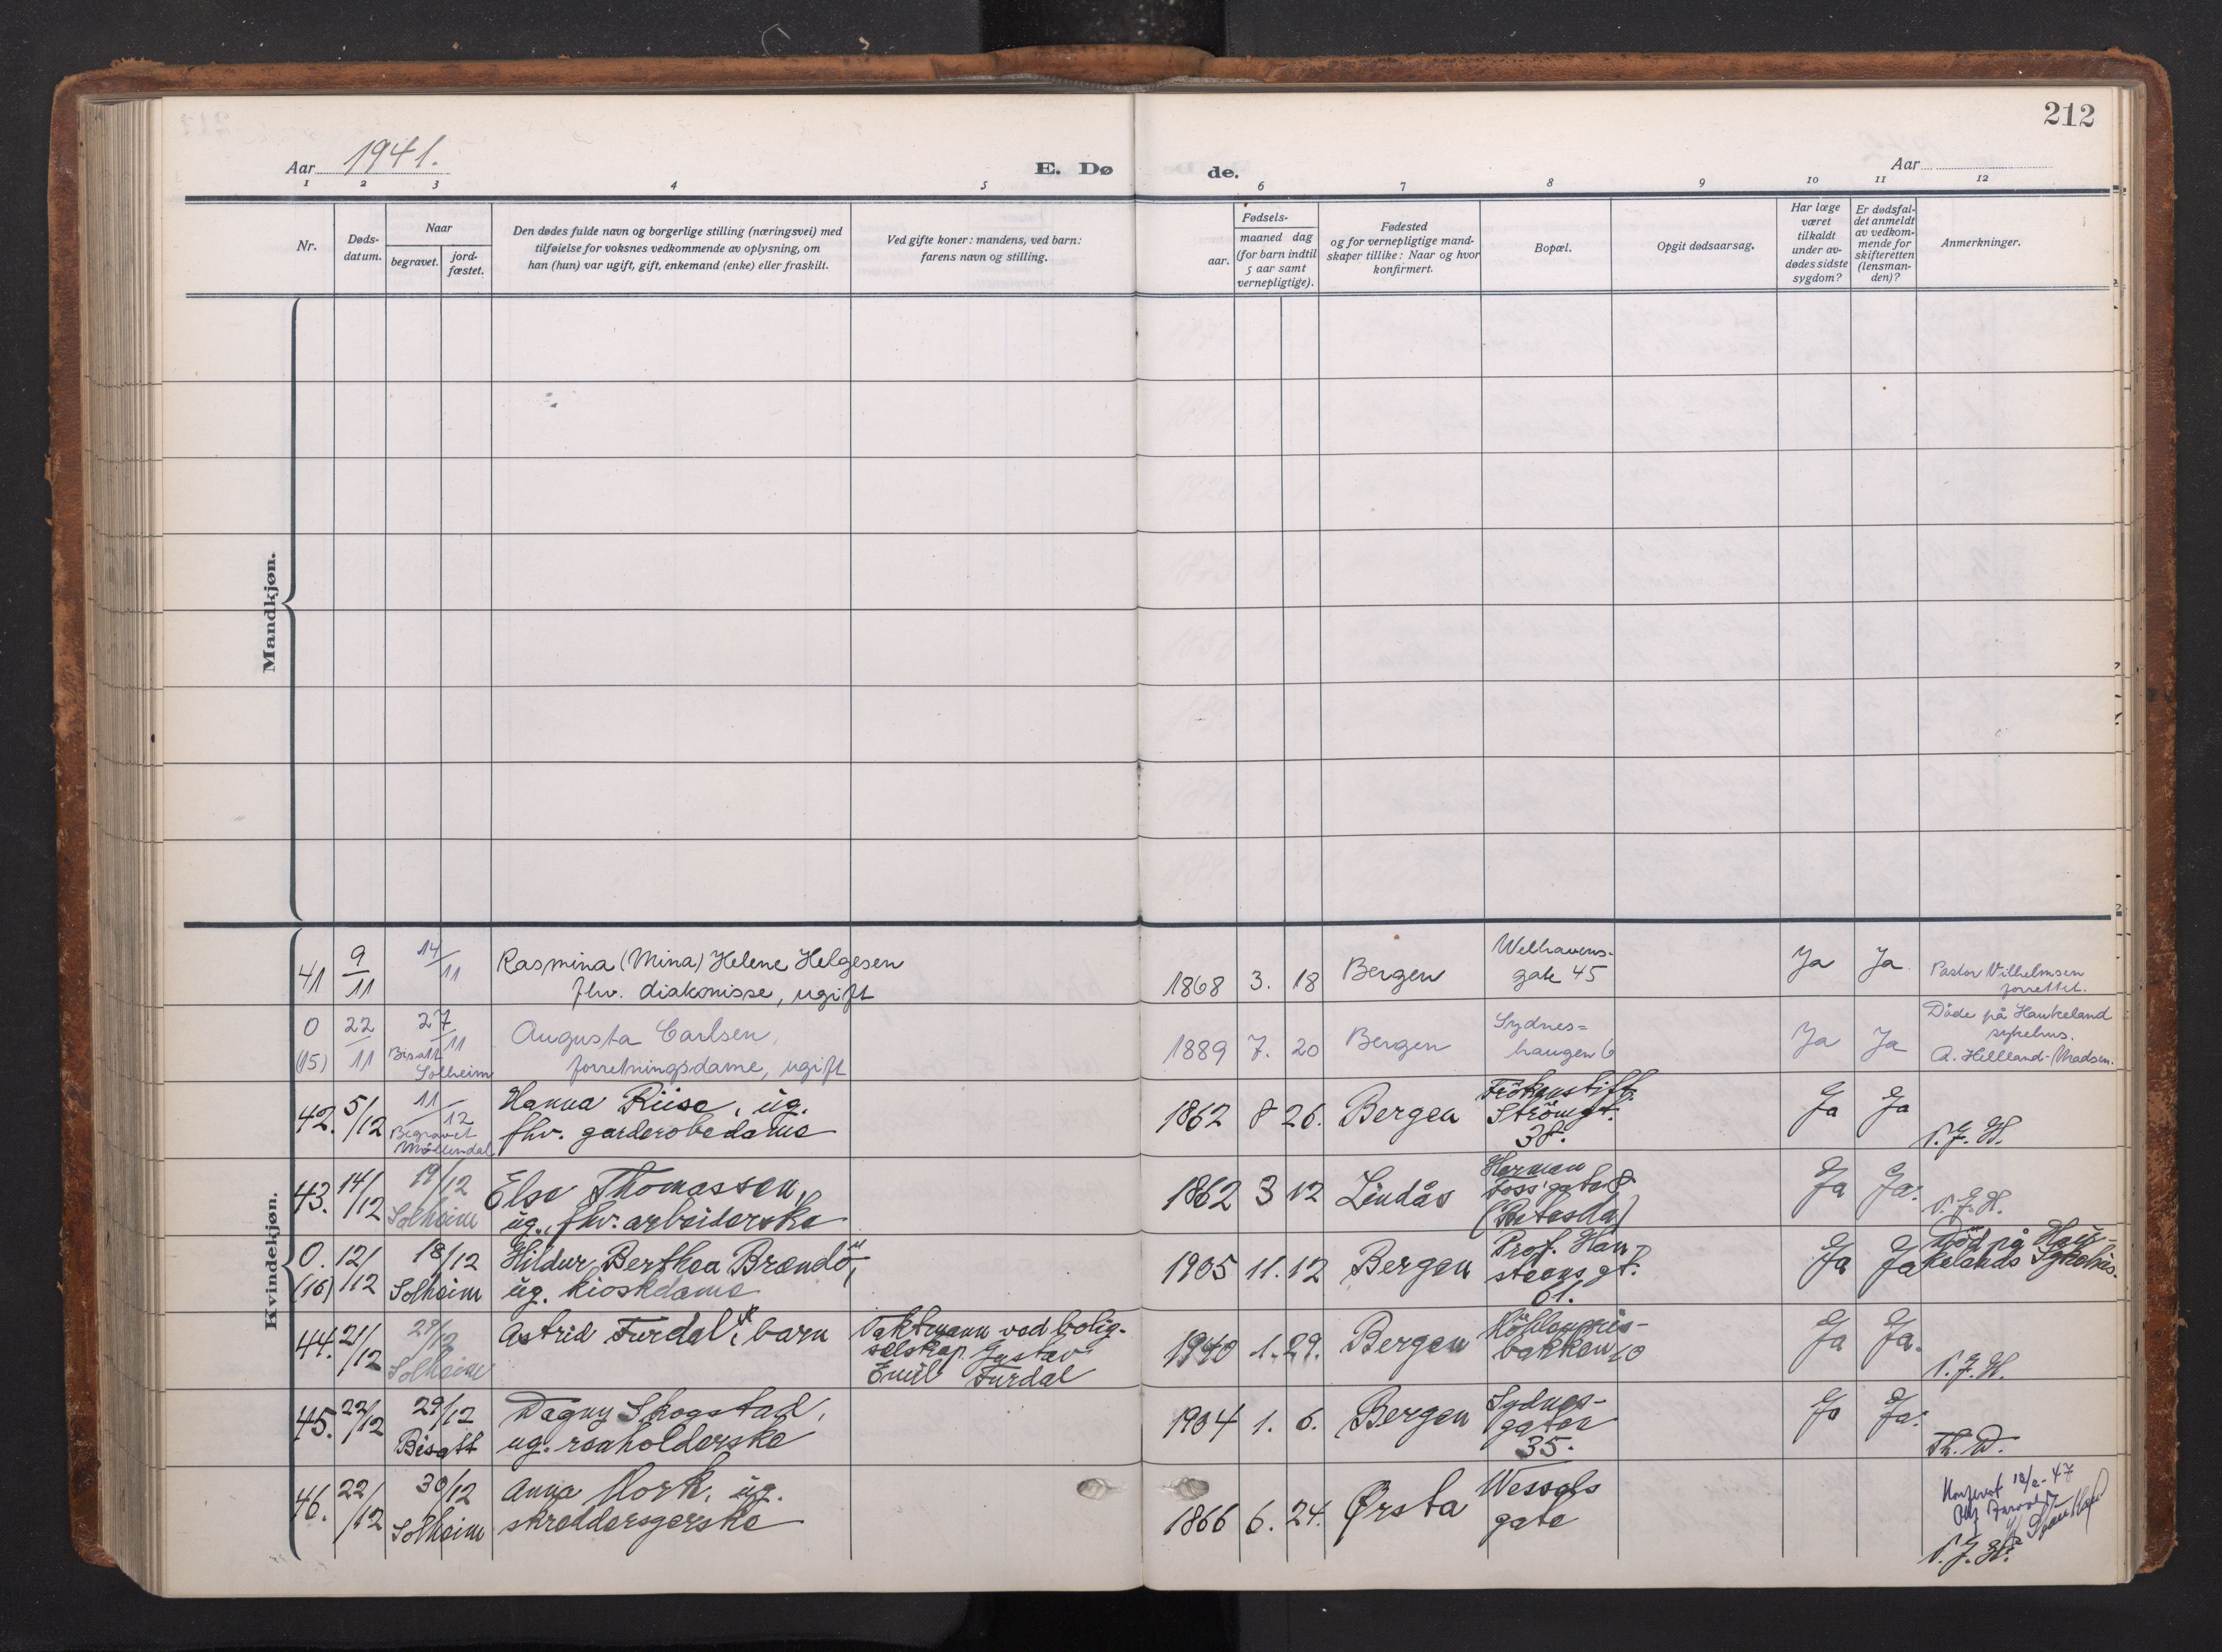 212
Aar 1941.
E. Dø
de.
Aar
1 2 3 4 5 6 7 8 9 10 11 12
Nr.
Døds-
datum.
Naar
begravet.
jord-
fæstet.
Den dødes fulde navn og borgerlige stilling (næringsvei) med
tilføielse for voksnes vedkommende av oplysning, om
han (hun) var ugift, gift, enkemand (enke) eller fraskilt.
Ved gifte koner: mandens, ved barn:
farens navn og stilling.
Fødsels-
aar.
maaned dag
(for barn indtil
5 aar samt
vernepligtige).
Fødested
og for vernepligtige mand-
skaper tillike: Naar og hvor
konfirmert.
Bopæl.
Opgit dødsaarsag.
Har læge
været
tilkaldt
under av-
dødes sidste
sygdom?
Er dødsfal-
det anmeldt
av vedkom-
mende for
skifteretten
(lensman-
den)?
Anmerkninger.
Mandkjøn.
Kvindekjøn.
41 9/11 14/11 Rasmina (Mina) Helene Helgesen
fhv. diakonisse, ugift
1868 3. 18 Bergen
Welhavens-
gate 45
Ja Ja
Pastor Vilhelmsen
forrettet.
0
(15) 22/11 27/11
Bisatt
Solheim
Augusta Carlsen,
forretningsdame, ugift
1889 7. 20 Bergen
Sydnes=
haugen 6
Ja Ja
Døde på Haukeland
sykehus.
A. Hellland-Madsen.
42. 5/12 11/12
Begravet
Møllendal
Hanna Riise, ug.
fhv. garderobedame
1862 8 26. Bergen
Frökenstift.
Strömgt.
38.
Ja Ja
P. J. H.
43. 14/12 19/12
Solheim
Else Thomassen,
ug., fhv. arbeiderske
1862 3 12 Lindås
Herman
Foss' gate 8
(Betesda)
Ja Ja.
P. J. H.
0.
(16) 12/12 18/12
Solheim
Hildur Berthea Brændö,
ug. kioskdame
1905 11. 12 Bergen
Prof. Han-
steens gt.
61.
Ja Ja
Död på Hau-
kelands Sykehus.
44. 21/12 29/12
Solheim
Astrid Furdal, barn
Taktmann ved bolig-
selskap. Gustav
Emil Furdal
1940 1. 29. Bergen
Möhlenpris-
bakken 10
Ja Ja.
P. J. H.
45. 22/12 29/12
Bisatt
Dagny Skogstad,
ug. renholderske
1904 1. 6. Bergen
Sydnes-
gaten
35.
Ja Ja.
Th. W.
46. 22/12 30/12
Solheim
Anna Mork, ug.
skreddersyerske
1866 6. 24. Ørsta
Wessels
gate
P. J. H.